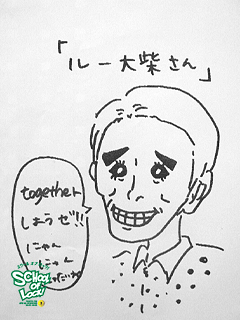 「ルー大柴さん」
togetherト
しようぜ!!
にゃん
にゃん
だわ
SCHOOL
OF
LOCK!